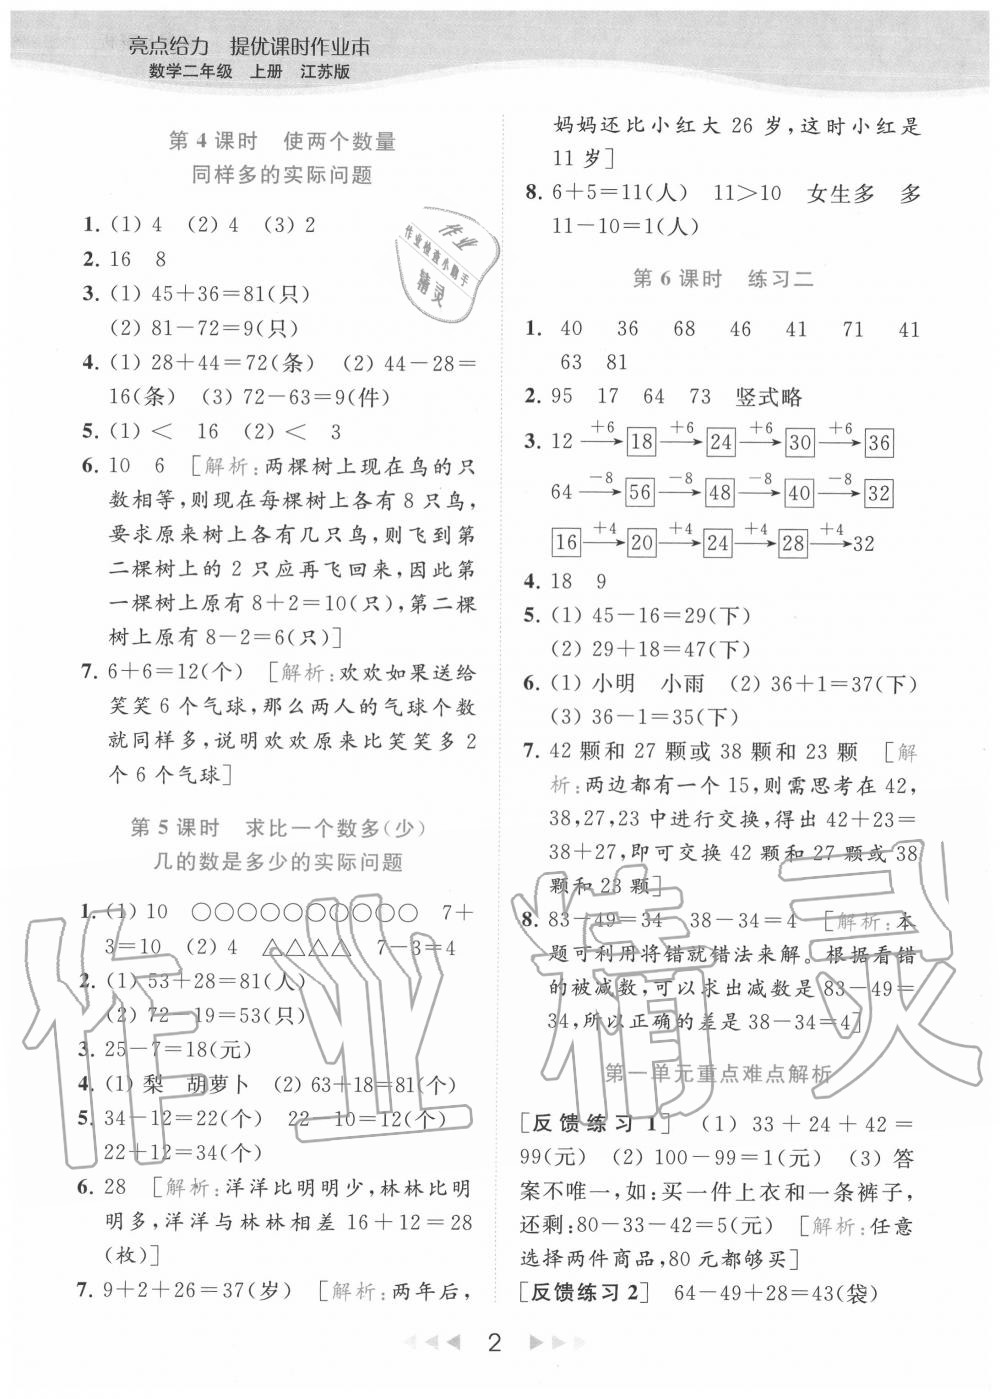 亮点给力 提优课时作业本
数学二年级 上册 江苏版
第 4 课时 使两个数量
同样多的实际问题
1. (1) 4 (2) 4 (3) 2
2. 16 8
3. (1) 45+36=81(只)
(2) 81-72=9(只)
4. (1) 28+44=72(条) (2) 44-28=
16(条) (3) 72-63=9(件)
5. (1) < 16 (2) < 3
6. 10 6 [解析:两棵树上现在鸟的只
数相等,则现在每棵树上各有 8 只鸟,
要求原来树上各有几只鸟,则飞到第
二棵树上的 2 只应再飞回来,因此第
一棵树上原有 8+2=10(只),第二棵
树上原有 8-2=6(只)]
7. 6+6=12(个) [解析:欢欢如果送给
笑笑 6 个气球,那么两人的气球个数
就同样多,说明欢欢原来比笑笑多 2
个 6 个气球]
第 5 课时 求比一个数多(少)
几的数是多少的实际问题
1. (1) 10 ○○○○○○○○○○ 7+
3=10 (2) 4 △△△△ 7-3=4
2. (1) 53+28=81(人)
(2) 72-19=53(只)
3. 25-7=18(元)
4. (1) 梨 胡萝卜 (2) 63+18=81(个)
5. 34-12=22(个) 22-10=12(个)
22+12=34(个)
6. 28 [解析:洋洋比明明少,林林比明
明多,洋洋与林林相差 16+12=28
(枚)]
7. 9+2+26=37(岁) [解析:两年后,
妈妈还比小红大 26 岁,这时小红是
11 岁]
8. 6+5=11(人) 11>10 女生多 多
11-10=1(人)
第 6 课时 练习二
1. 40 36 68 46 41 71 41
63 81
2. 95 17 64 73 竖式略
3. 12 +6→ 18 +6→ 24 +6→ 30 +6→ 36
64 -8→ 56 -8→ 48 -8→ 40 -8→ 32
16 +4→ 20 +4→ 24 +4→ 28 +4→ 32
4. 18 9
5. (1) 45-16=29(下)
(2) 29+18=47(下)
6. (1) 小明 小雨 (2) 36+1=37(下)
(3) 36-1=35(下)
7. 42 颗和 27 颗或 38 颗和 23 颗 [解
析:两边都有一个 15,则需思考在 42,
38,27,23 中进行交换,得出 42+23=
38+27,即可交换 42 颗和 27 颗或 38
颗和 23 颗]
8. 83-49=34 38-34=4 [解析:本
题可利用将错就错法来解。根据看错
的被减数,可以求出减数是 83-49=
34,所以正确的差是 38-34=4]
第一单元重点难点解析
[反馈练习 1] (1) 33+24+42=
99(元) (2) 100-99=1(元) (3) 答
案不唯一,如:买一件上衣和一条裤子,
还剩:80-33-42=5(元) [解析:任意
选择两件商品,80 元都够买]
[反馈练习 2] 64-49+28=43(袋)
2
作业
作业检查小助手
精灵
作业精灵